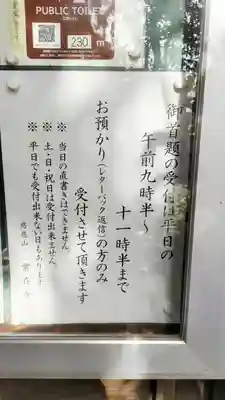 PUBLIC TOILET
230 m
御首題の受付は平日の
午前九時半～
十一時半まで
お預かり（レターパック返信）の方のみ
受付させて頂きます
※ 当日の直書きはできません
※ 土・日・祝日は受付出来ません
※ 平日でも受付出来ない日もあります